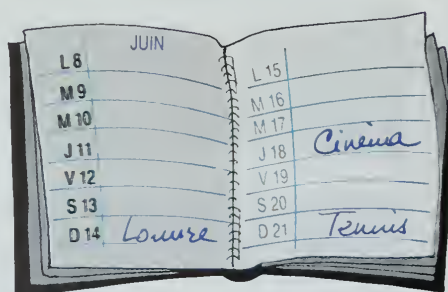 JUIN
L 8
M 9
M 10
J 11
V 12
S 13
D 14 Louvre
L 15
M 16
M 17
J 18 Cinéma
V 19
S 20
D 21 Tennis